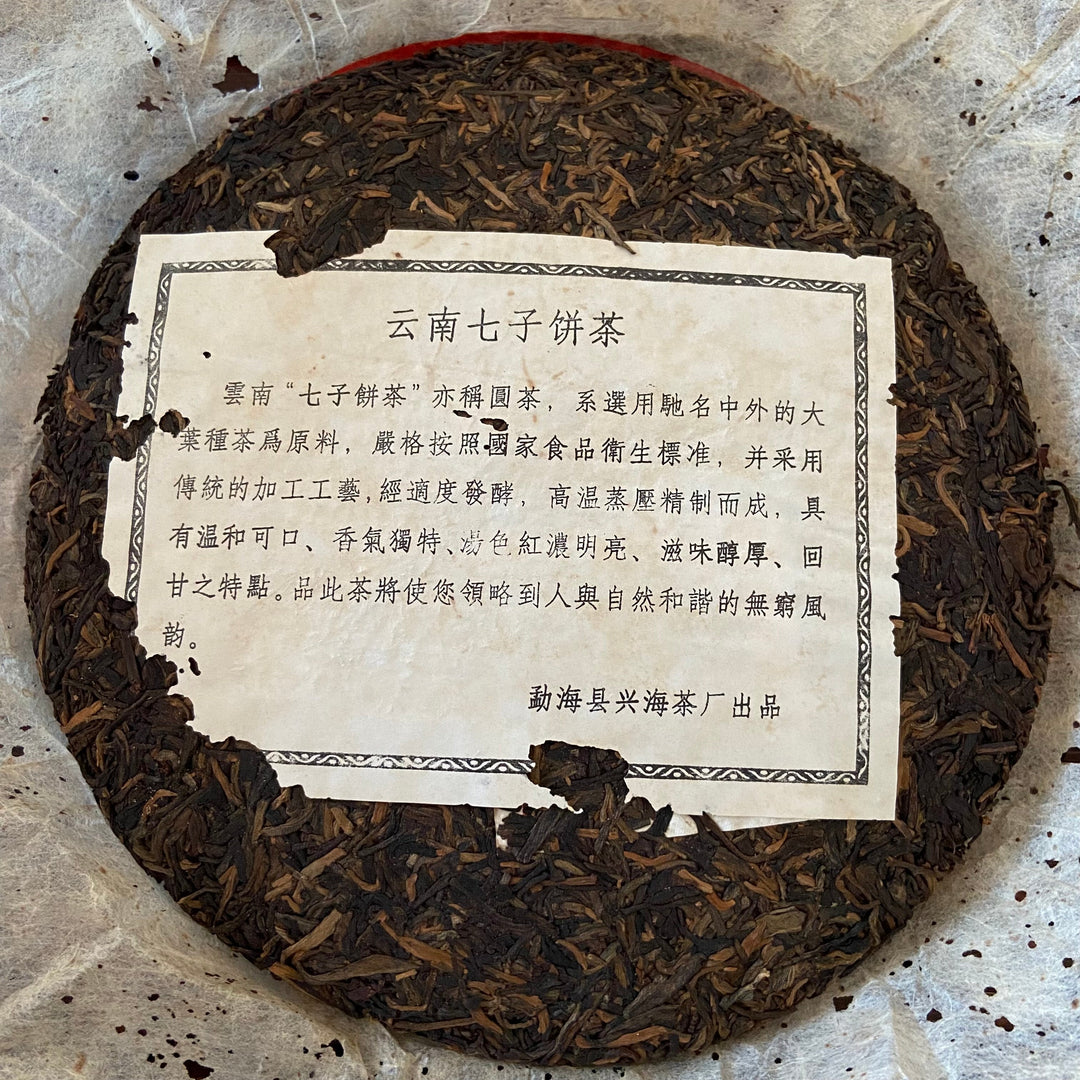 云南七子饼茶
雲南“七子餅茶”亦稱圓茶，系選用馳名中外的大
葉種茶爲原料，嚴格按照國家食品衛生標准，并采用
傳統的加工工藝,經適度發酵，高温蒸壓精制而成，具
有温和可口、香氣獨特、湯色紅濃明亮、滋味醇厚、回
甘之特點。品此茶將使您領略到人與自然和諧的無窮風
韵。
勐海县兴海茶厂出品